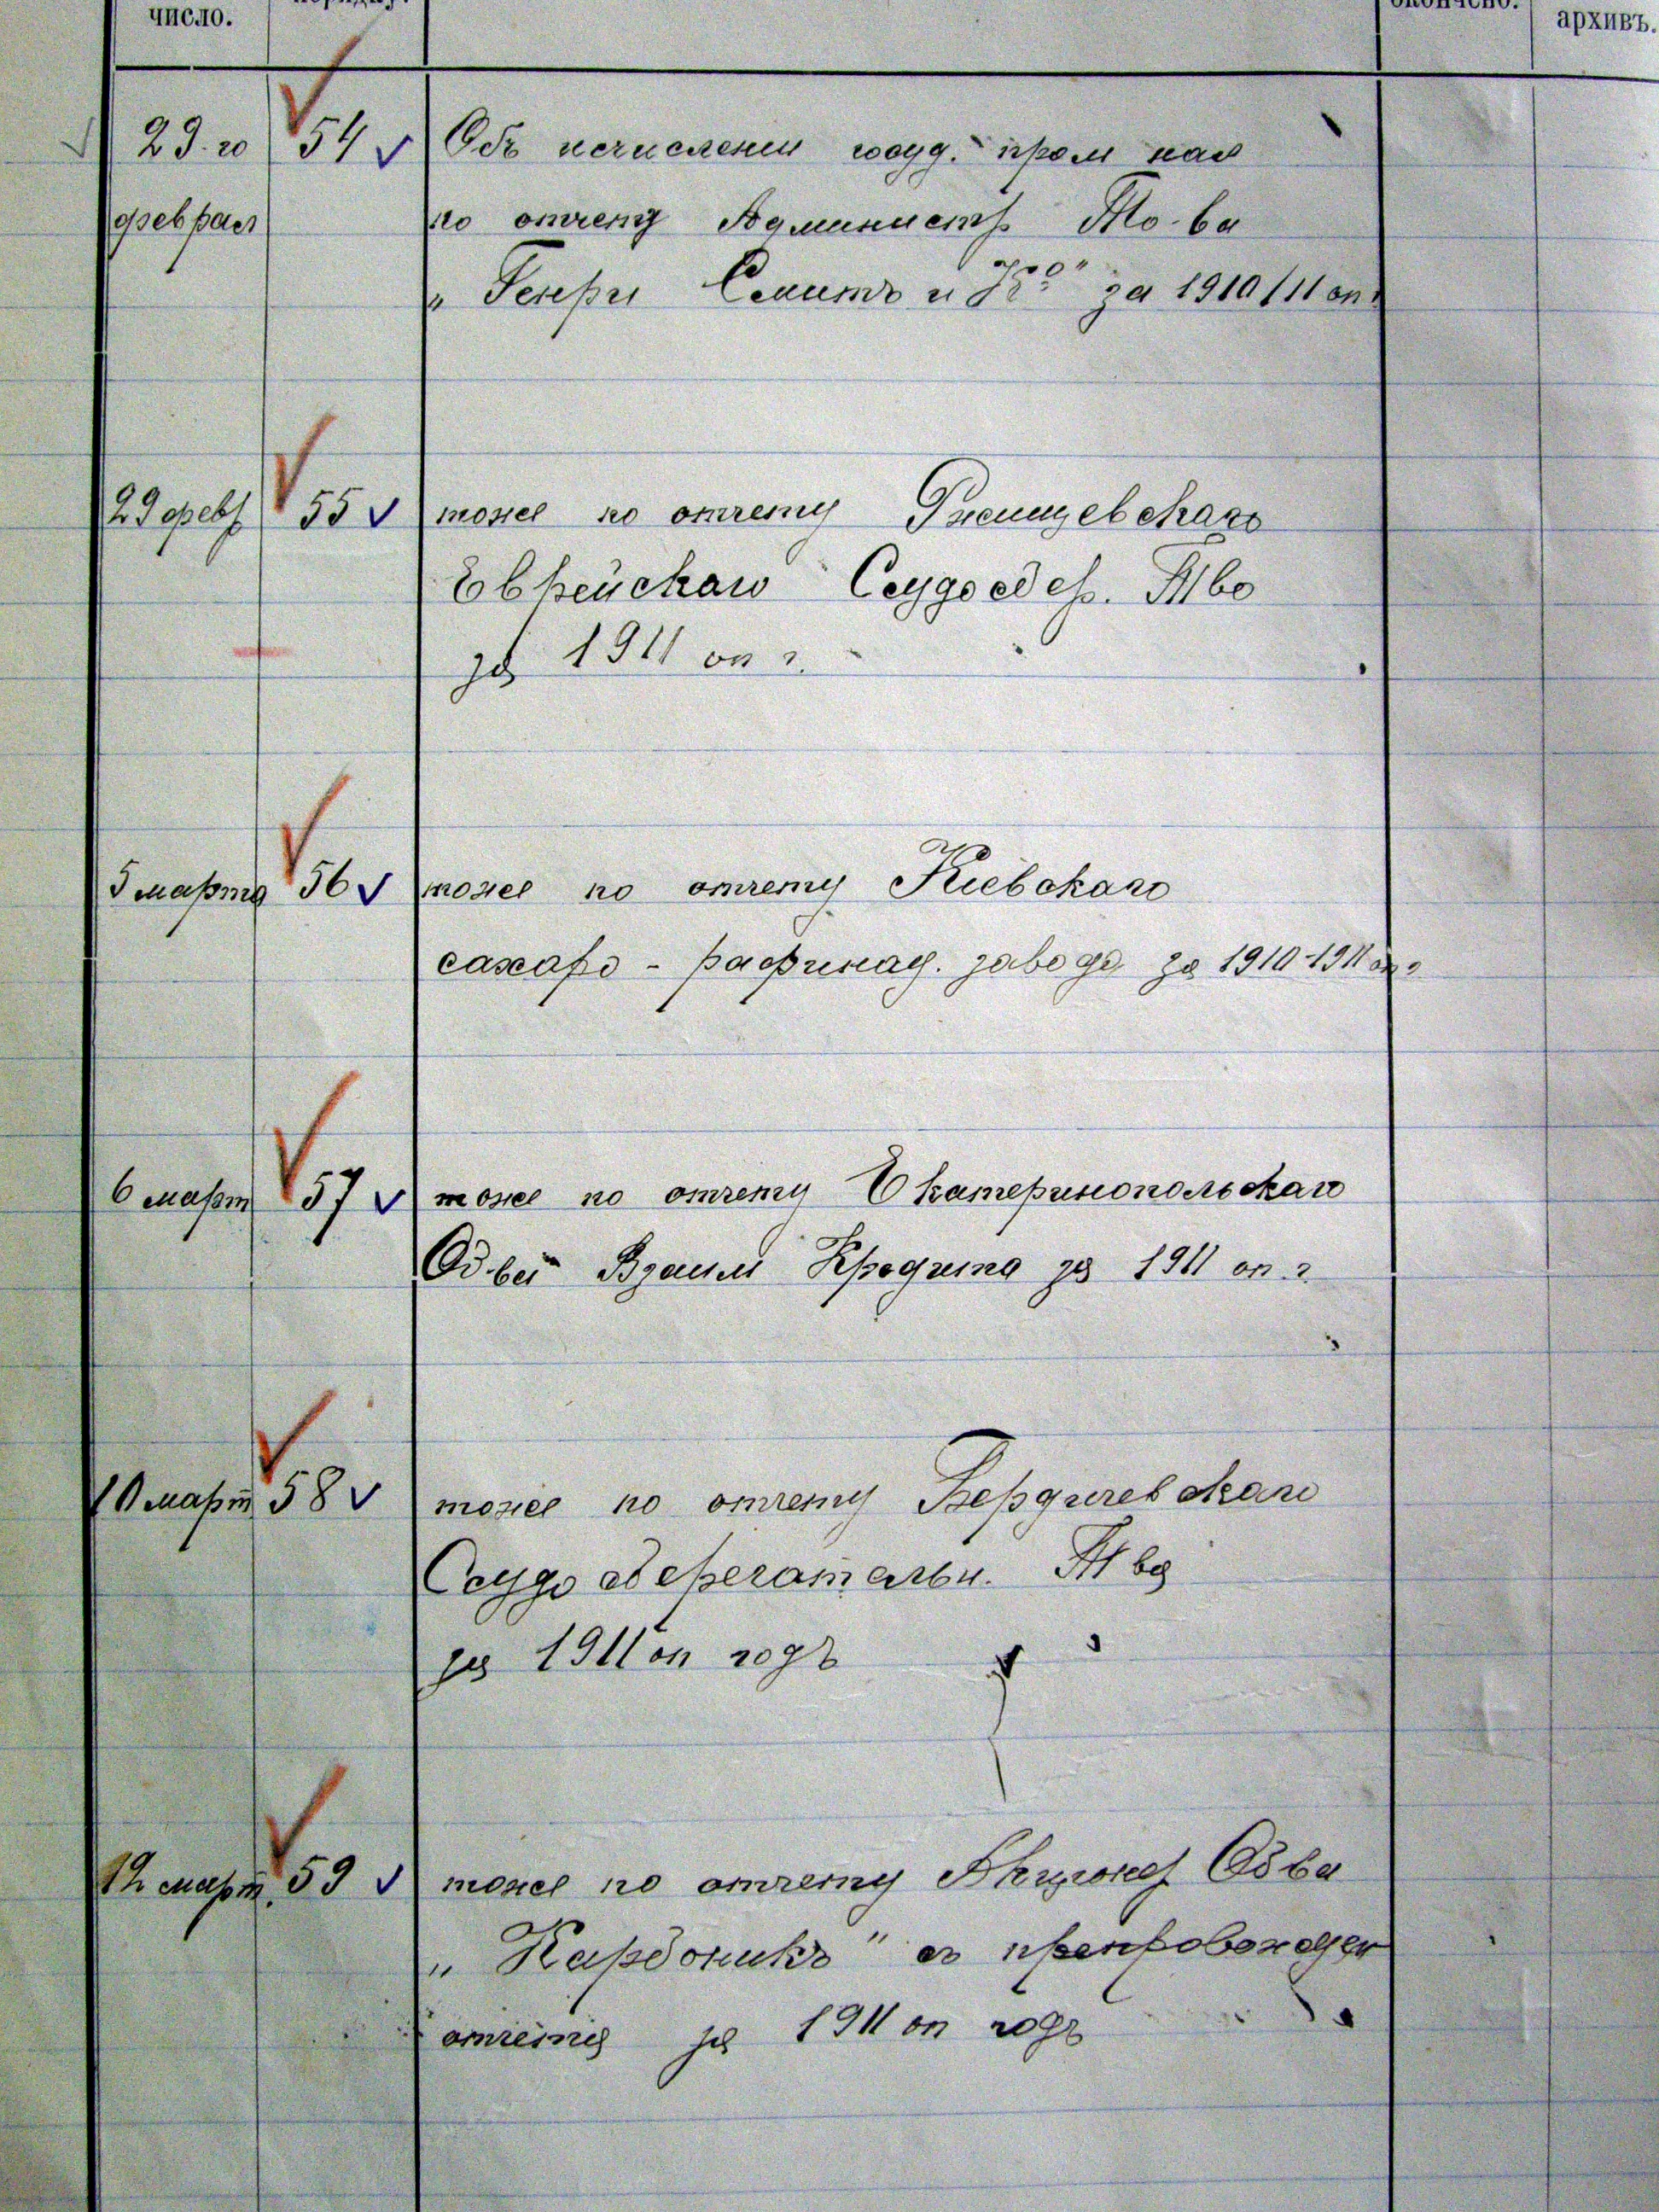 число.
порядку.
окончено.
архивъ.
29-го 54 Объ исчислении госуд. пром нал
февраля по отчету Администр То-ва
„Генри Смитъ и Ко“ за 1910/11 оп.
29 февр 55 тоже по отчету Ржищевскаго
Еврейскаго Ссудосбер. Тва
за 1911 оп г.
5 марта 56 тоже по отчету Киевскаго
сахаро-рафинад. завода за 1910-1911 оп г
6 март 57 тоже по отчету Екатеринопольскаго
Об-ва Взаим Кредита за 1911 оп. г.
10 март 58 тоже по отчету Бердичевскаго
Ссудосберегательн. Тва
за 1911 оп годъ
12 март. 59 тоже по отчету Акционер Обва
„Карбоникъ“ съ препровожден
отчета за 1911 оп годъ